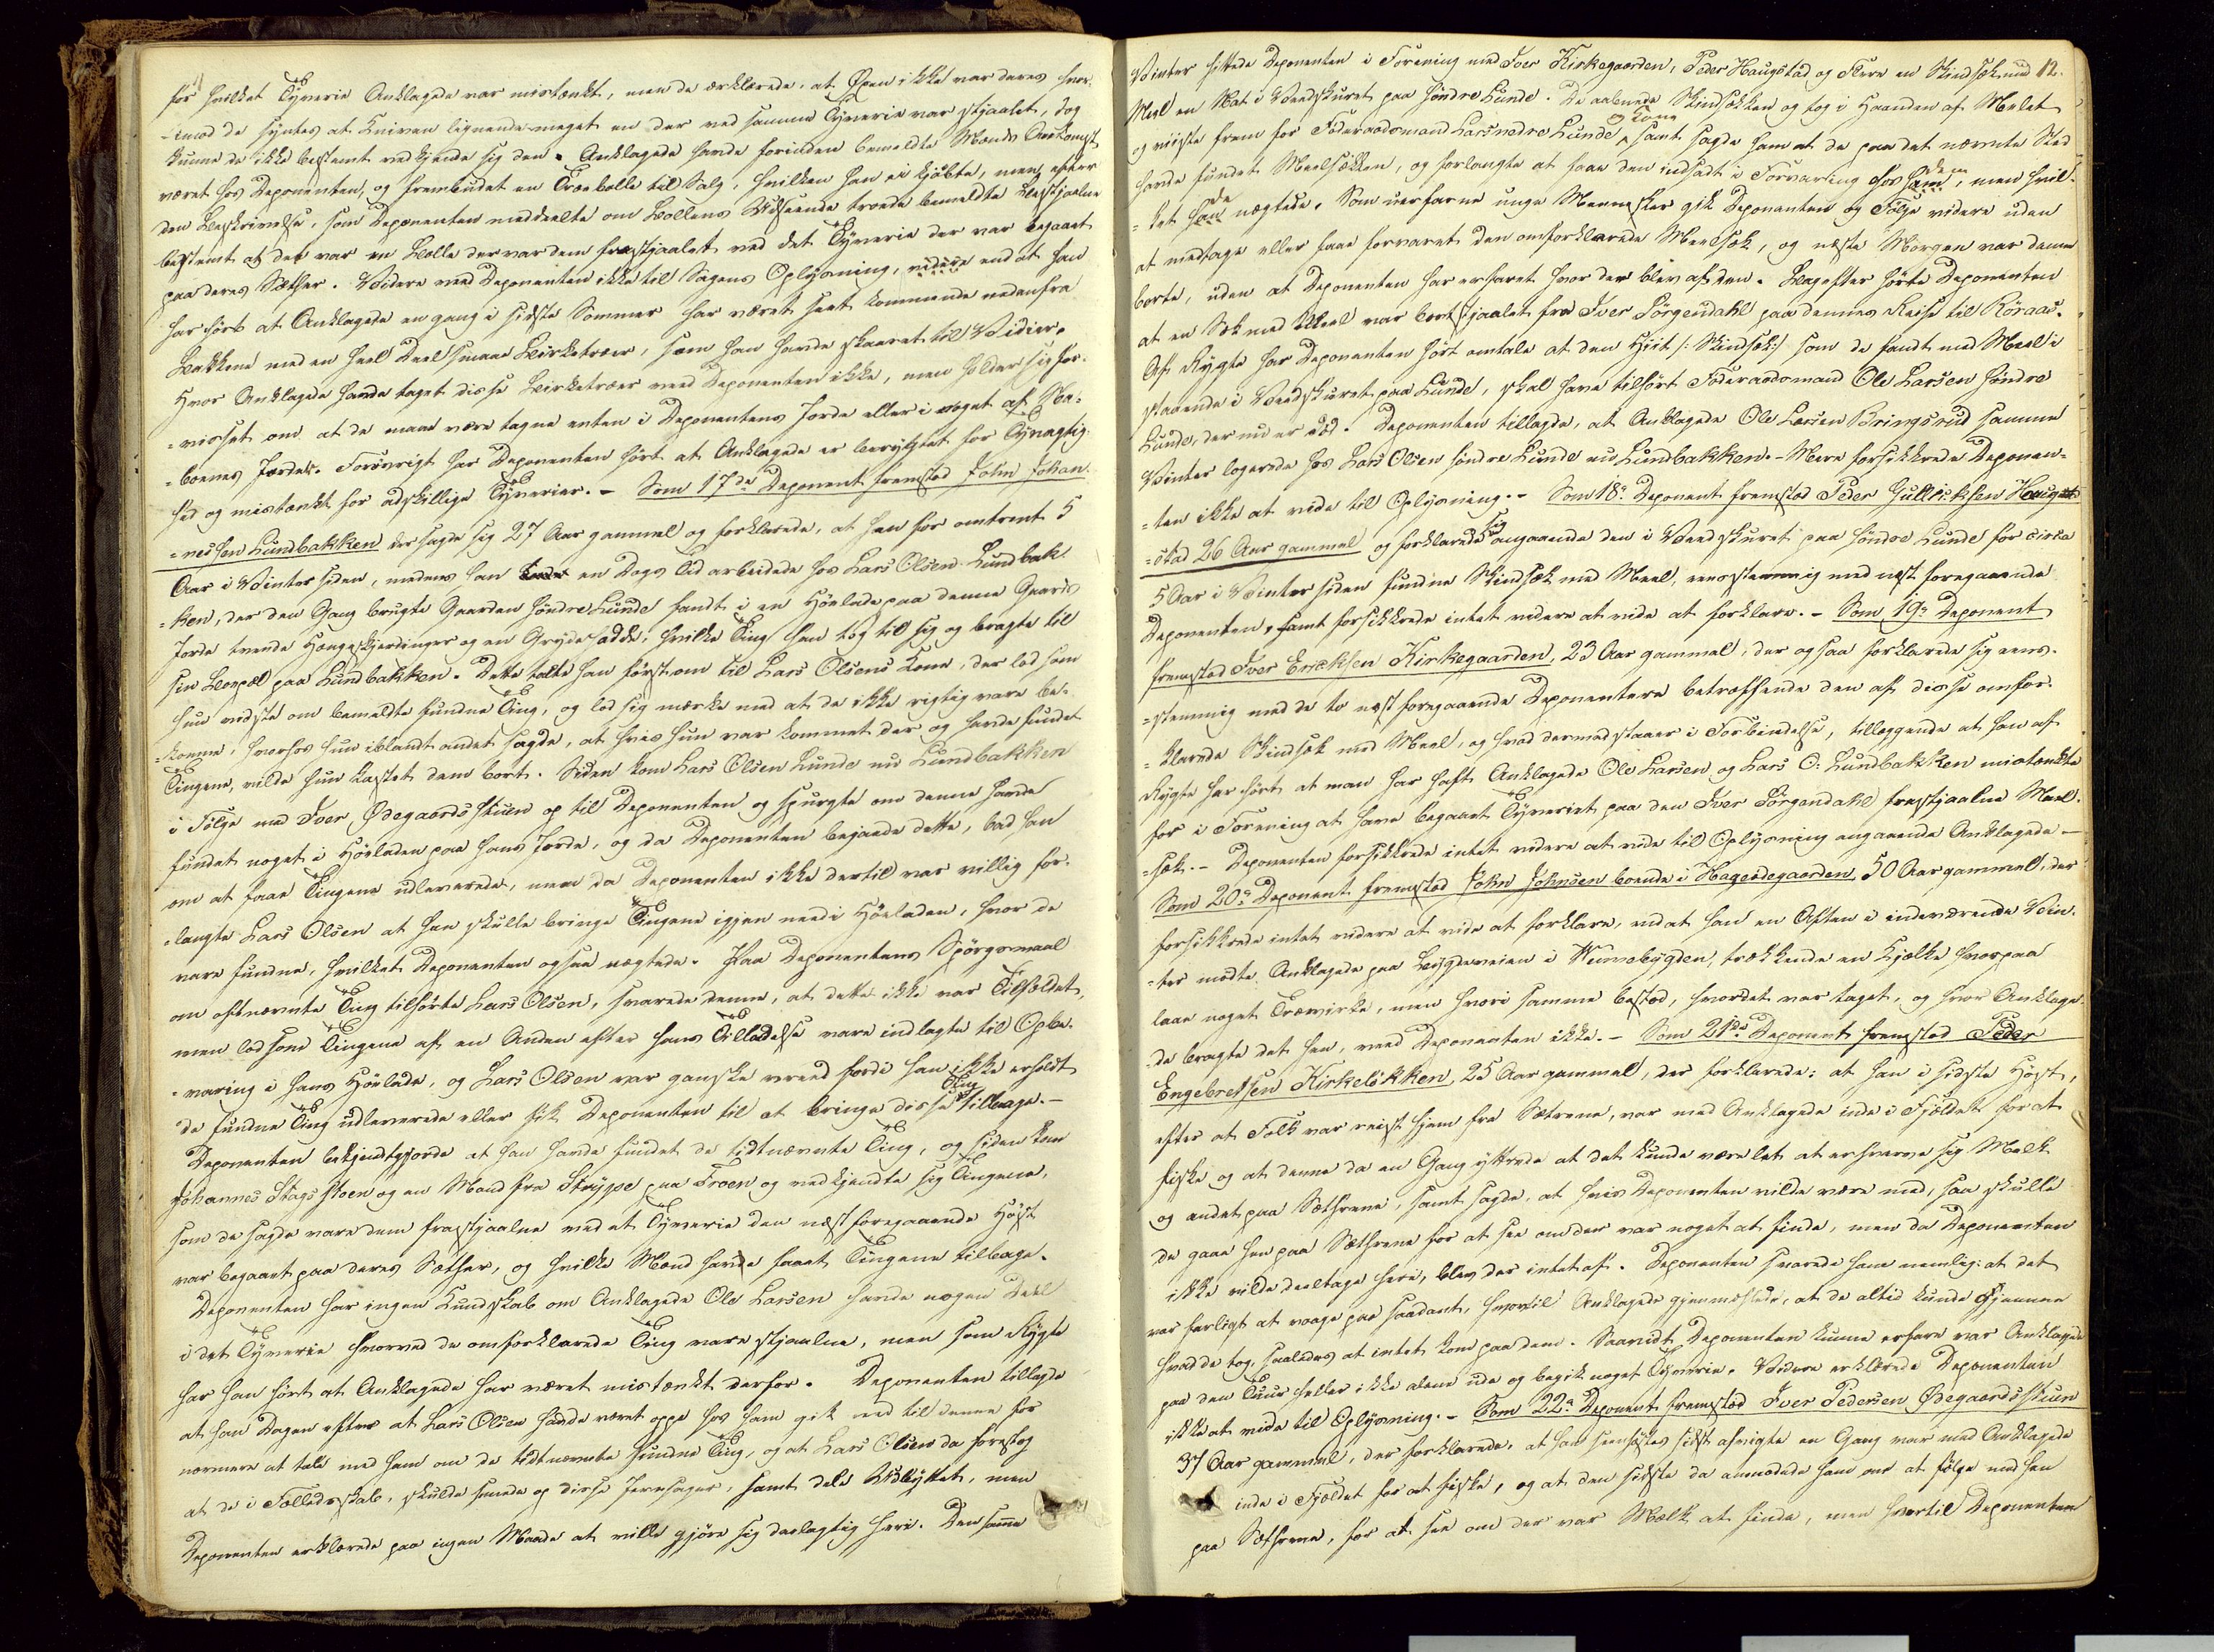 for hvilket Tyverie Anklagede var mistænkt, men de erklærede, at Øxen ikke var deres hvor-
-imod de syntes at Kniven lignende meget en der ved samme Tyverie var stjaalet, dog
kunne de ikke bestemt vedkjende sig den. Anklagede havde forinden bemeldte Mænds Ankomst
været hos Deponenten, og frembudet en Træebolle til Salg, hvilken han ei kjøbte, men efter
den Beskrivelse, som Deponenten meddeelte om Bollens Udseende troede bemeldte Bestjaalne
bestemt at det var en Bolle der var dem frastjaalet ved det Tyverie der var begaaet
paa deres Sæther. Videre veed Deponenten ikke til Sagens Oplysning, videre end at han
har hørt at Anklagede en gang i sidste Sommer har været seet kommende nedenfra
Bakkene med en heel Deel smaae Birketræer, som han havde skaaret til Vidier.
Hvor Anklagede havde taget disse Birketræer veed Deponenten ikke, men holder sig for-
-visset om at de maae være tagne enten i Deponentens Jorde eller i noget af Na-
-boernes Jorder. Forøvrigt har Deponenten hørt at Anklagede er berygtet for Tyvagtig-
hed og mistænkt for adskillige Tyverier. – Som 17de Deponent fremstod John Johan-
-nessen Lundbakken der sagde sig 27 Aar gammel og forklarede, at han for omtrent 5
Aar i Vinter siden, medens han en Dags Tid arbeidede hos Lars Olsen Lundbak-
-ken, der den Gang brugte Gaarden Søndre Lunde fandt i en Høelade paa denne Gaards
Jorde tvende Hængeskjerdinger og en Grydehadde; hvilke Ting han tog til sig og bragte til
sin Boepæl paa Lundbakken. Dette talte han først om til Lars Olsens Kone, der lod som
hun vidste om bemeldte fundne Ting, og lod sig mærke med at de ikke rigtig vare be-
-komne, hvorhos hun iblandt andet sagde, at hvis hun var kommet der og havde fundet
Tingene, vilde hun kastet dem bort. Siden kom Lars Olsen Lunde nu Lundbakken
i Følge med Iver Ødegaardsstuen op til Deponenten og spurgte om denne havde
fundet noget i Høeladen paa hans Jorde, og da Deponenten bejaede dette, bad han
om at faae Tingene udleverede, men da Deponenten ikke dertil var villig for-
-langte Lars Olsen at han skulle bringe Tingene igjen ned i Høeladen, hvor de
vare fundne, hvilket Deponenten ogsaa nægtede. Paa Deponentens Spørgsmaal
om oftnævnte Ting tilhørte Lars Olsen, svarede denne, at dette ikke var Tilfældet,
men lod som Tingene af en Anden efter hans Tilladelse vare indlagte til Opbe-
-varing i hans Høelade, og Lars Olsen var ganske vreed fordi han ikke erholdt
de fundne Ting udleverede eller fik Deponenten til at bringe disse Ting tilbage. –
Deponenten bekjendtgjorde at han havde fundet de tidtnævnte Ting, og siden kom
Johannes Stagshoen og en Mand fra Strype paa Froen og vedkjendte sig Tingene,
som de sagde vare dem frastjaalne ved et Tyverie den næst foregaaende Høst
var begaaet paa deres Sæther, og hvilke Mænd havde faaet Tingene tilbage.
Deponenten har ingen Kundskab om Anklagede Ole Larsen havde nogen Deel
i det Tyverie hvorved de omforklarede Ting vare stjaalne, men som Rygte
har han hørt at Anklagede har været mistænkt derfor. Deponenten tillagde
at han Dagen efter at Lars Olsen havde været oppe hos ham gik ned til denne for
nærmere at tale med ham om de tidtnævnte fundne Ting, og at Lars Olsen da foreslog
at de i Fælledsskab, skulde smede op disse Jernsager, samt dele Udbyttet, men
Deponenten erklærede paa ingen Maade at ville gjøre sig deelagtig heri. Den samme
12.
Vinter hittede Deponenten i Forening med Iver Kirkegaarden, Peder Haugstad og Flere en Skindsæk med
Meel en Nat i Veedskuret paa Søndre Lunde. De aabnede Skindsækken og tog i Haanden af Meelet
og viiste frem for Føderaadsmand Lars nedre Lunde og Kone samt sagde ham at de paa det nævnte Sted
havde fundet Meelsækken, og forlangte at faae den indsadt i Forvaring hos ham dem, men hvil-
-ket han de nægtede. Som uerfarne unge Mennesker gik Deponenten og Følge videre uden
at medtage eller faae forvaret den omforklarede Meelsæk, og næste Morgen var denne
borte, uden at Deponenten har erfaret hvor der blev af den. Bagefter hørte Deponenten
at en Sæk med Meel var bortstjaalet fra Iver Sørgendahl paa dennes Reise til Røraas.
Af Rygte har Deponenten hørt omtale at den Hiit /: Skindsæk:/ som de fandt med Meel i
staaende i Veedskuret paa Lunde, skal have tilhørt Føderaadsmand Ole Larsen Søndre
Lunde, der nu er død. Deponenten tillagde, at Anklagede Ole Larsen Bringsrud samme
Vinter logerede hos Lars Olsen søndre Lunde nu Lundbakken. – Mere forsikkrede Deponen-
-ten ikke at vide til Oplysning. – Som 18de Deponent fremstod Peder Gulliksen Haug-
-stad 26 Aar gammel og forklarede sig angaaende den i Veedskuret paa søndre Lunde for circa
5 Aar i Vinter siden fundne Skindsæk med Meel, eensstemmig med næst foregaaende
Deponenten, samt forsikkrede intet videre at vide at forklare. – Som 19de Deponent
fremstod Iver Ericksen Kirkegaarden, 23 Aar gammel, der ogsaa forklarede sig eens-
-stemmig med de to næst foregaaende Deponentere betræffende den af disse omfor-
-klarede Skindsæk med Meel, og hvad dermed staaer i Forbindelse, tillæggende at han af
Rygte har hørt at man har haft Anklagede Ole Larsen og Lars O. Lundbakken mistænkte
for i Forening at have begaaet Tyveriet paa den Iver Sørgendahl frastjaalne Meel-
-sæk. – Deponenten forsikkrede intet videre at vide til Oplysning angaaende Anklagede –
Som 20de Deponent fremstod John Johnsen boende i Hageødegaarden, 50 Aar gammel, der
forsikkrede intet videre at vide at forklare, end at han en Aften i indeværende Vin-
-ter mødte Anklagede paa Bygdeveien i Wennebygden, trækkende en Kjælke hvorpaa
laae noget Træevirke, men hvori samme bestod, hvor det var taget, og hvor Anklage-
-de bragte det hen, veed Deponenten ikke. – Som 21de Deponent fremstod Peder
Engebretsen Kirkeløkken, 25 Aar gammel, der forklarede: at han i sidste Høst,
efter at Folk var reist hjem fra Sætrene, var med Anklagede inde i Fjeldet for at
fiske og at denne da en Gang yttrede at det kunde være let at erhverve sig Melk
og andet paa Sæthrene, samt sagde, at hvis Deponenten vilde være med, saa skulle
de gaae hen paa Sæthrene for at see om der var noget at finde, men da Deponenten
ikke vilde deeltage heri, blev der intet af. Deponenten svarede ham nemlig: at det
var farligt at vaage paa saadant, hvortil Anklagede gjenmælede, at de altid kunde gjemme
hvad de tog, saaledes at intet kom paa dem. Saavidt Deponenten kunne erfare var Anklagede
paa den Tuur heller ikke alene ude og begik noget Tyverie. Videre erklærede Deponenten
ikke at vide til Oplysning. – Som 22de Deponent fremstod Iver Pedersen Ødegaardsstuen
37 Aar gammel, der forklarede, at han sidst afvigte en Gang var med Anklagede
inde i Fjeldet for at fiske, og at den sidste da anmodede ham om at følge med hen
paa Sæthrene, for at see om der var Mælk at finde, men hvortil Deponenten